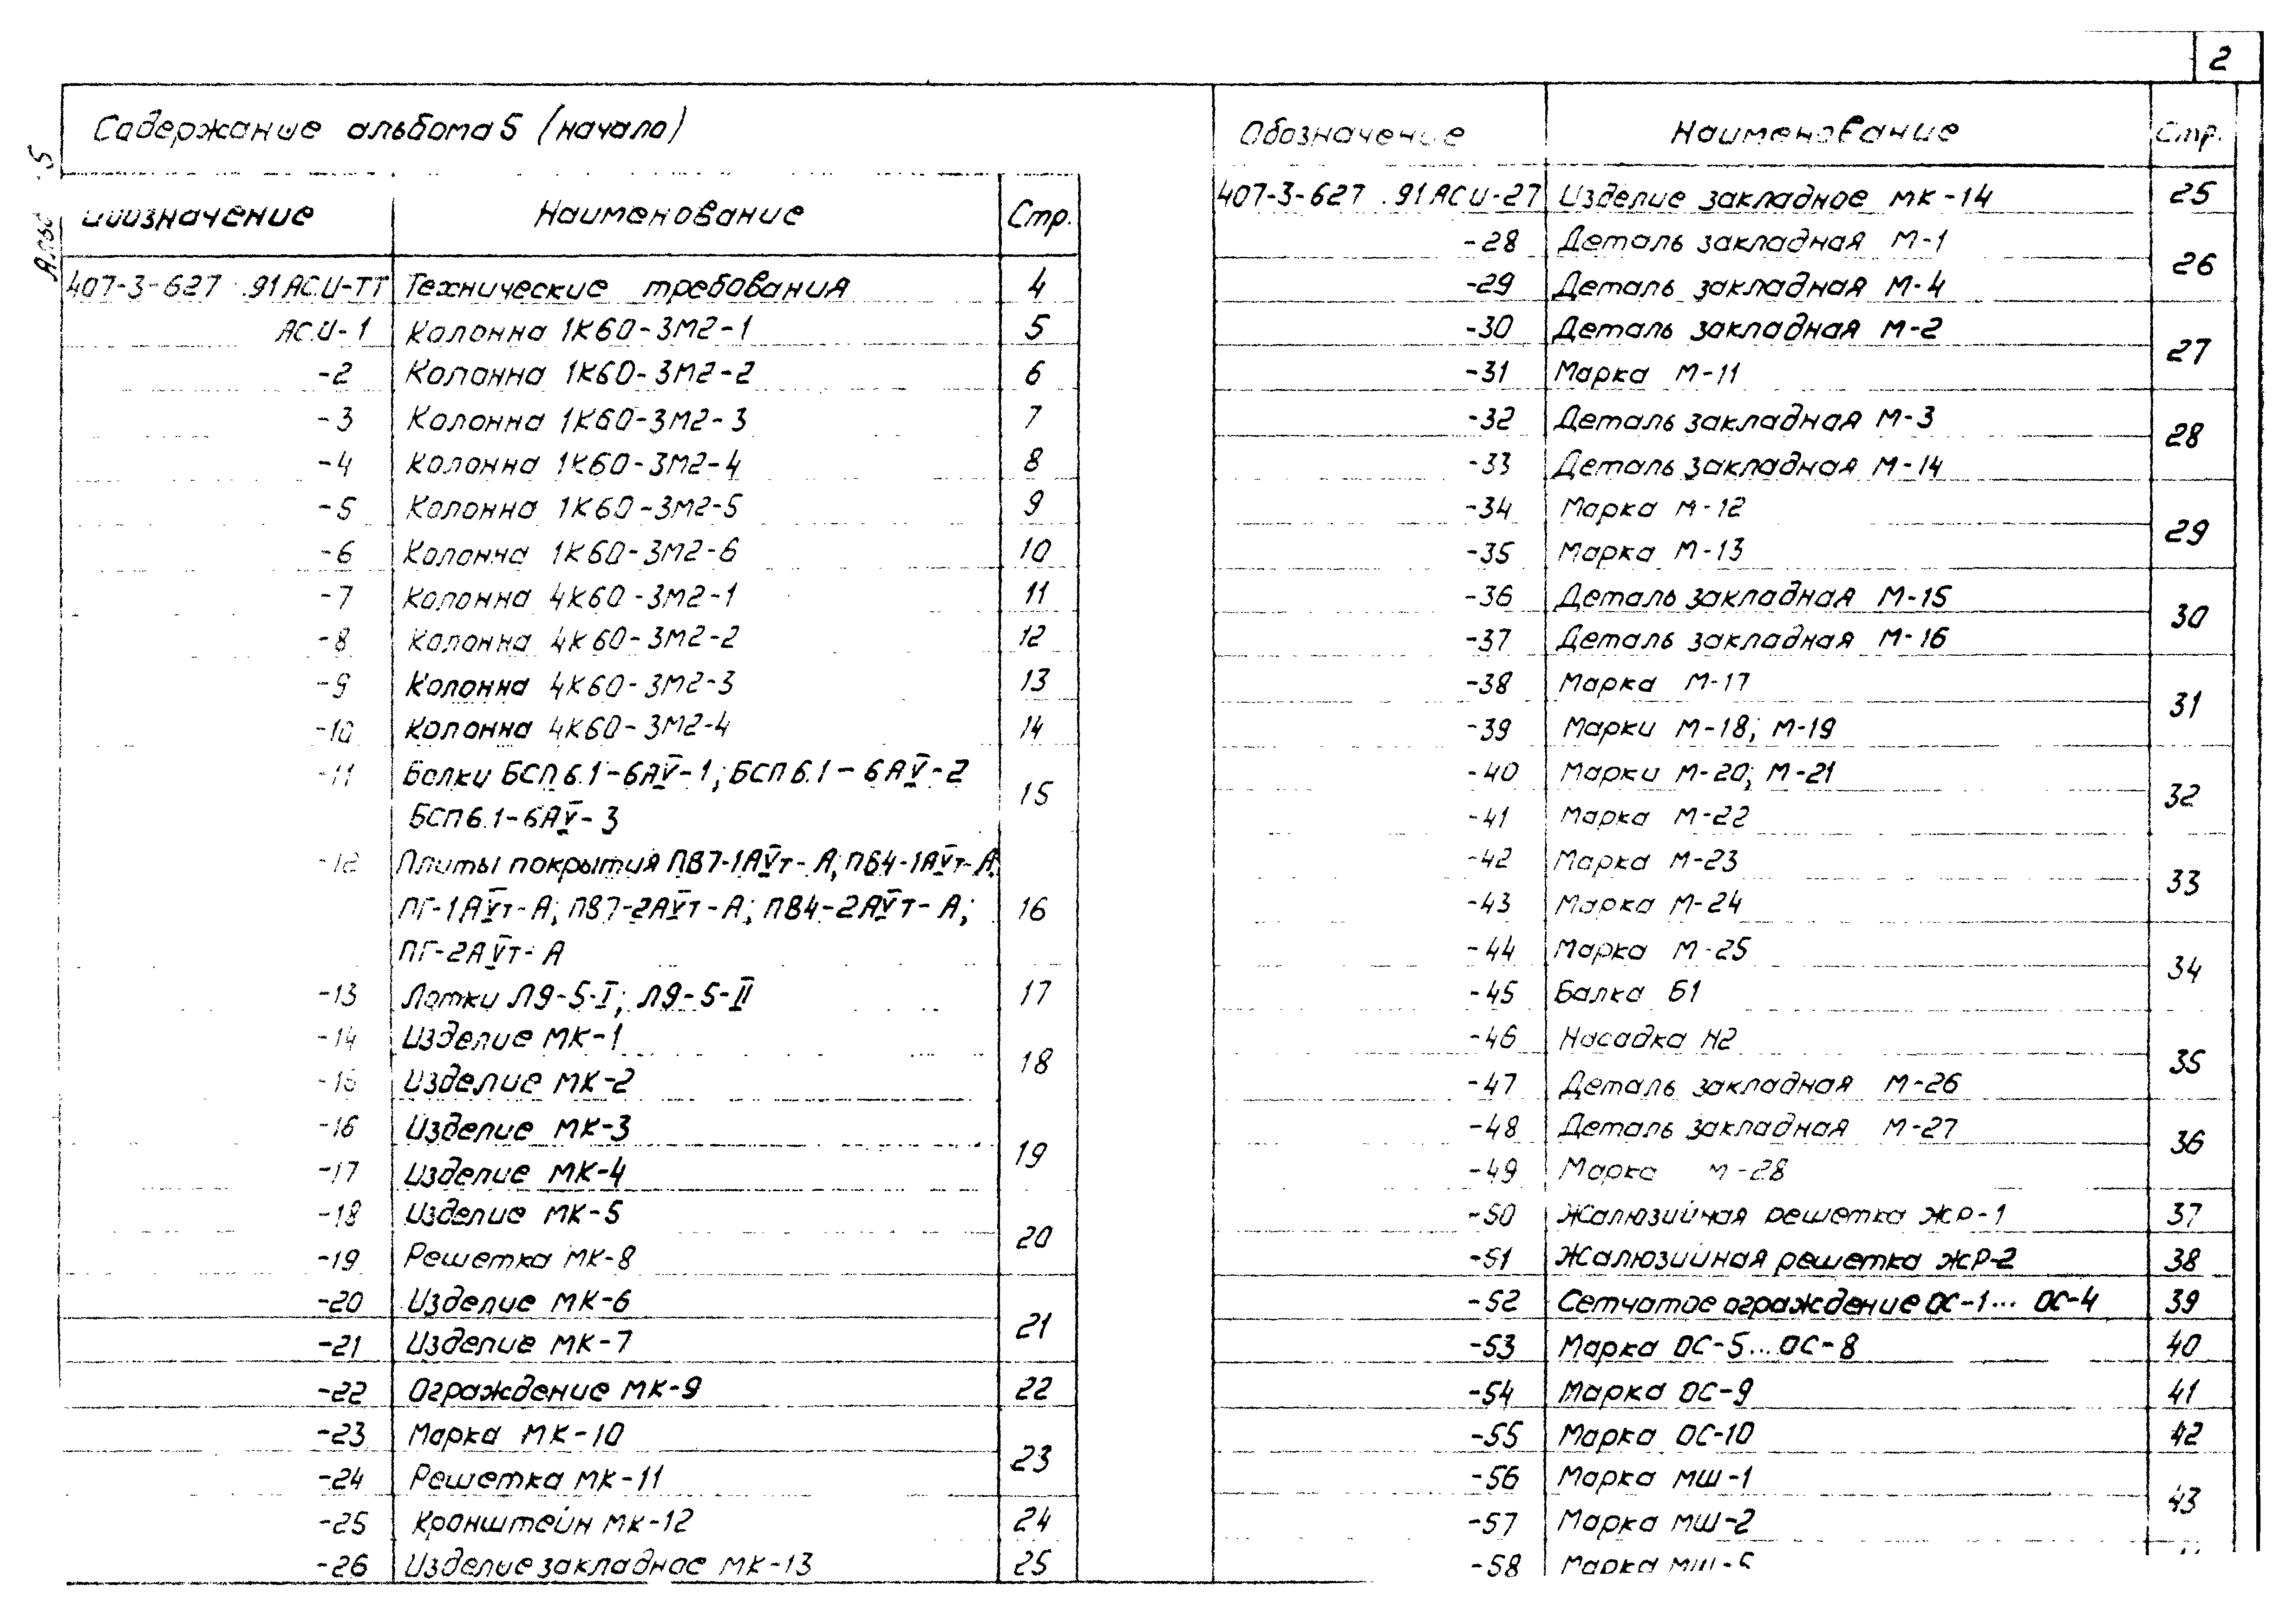 2
Содержание альбома 5 (начало)
Наименование Стр.
407-3-627 .91 АС.И-ТТ Технические требования 4
АС.И-1 Колонна 1К60-3М2-1 5
-2 Колонна 1К60-3М2-2 6
-3 Колонна 1К60-3М2-3 7
-4 Колонна 1К60-3М2-4 8
-5 Колонна 1К60-3М2-5 9
-6 Колонна 1К60-3М2-6 10
-7 Колонна 4К60-3М2-1 11
-8 Колонна 4К60-3М2-2 12
-9 Колонна 4К60-3М2-3 13
-10 Колонна 4К60-3М2-4 14
-11 Балки БСП6.1-6АV-1; БСП6.1-6АV-2
БСП6.1-6АV-3 15
-12 Плиты покрытия ПВ7-1АVт-А; ПБ4-1АVт-А
ПГ-1АVт-А; ПВ7-2АVт-А; ПВ4-2АVт-А; 16
ПГ-2АVт-А
-13 Лотки Л9-5-I; Л9-5-II 17
-14 Изделие МК-1
-15 Изделие МК-2 18
-16 Изделие МК-3
-17 Изделие МК-4 19
-18 Изделие МК-5
-19 Решетка МК-8 20
-20 Изделие МК-6
-21 Изделие МК-7 21
-22 Ограждение МК-9 22
-23 Марка МК-10
-24 Решетка МК-11 23
-25 Кронштейн МК-12 24
-26 Изделие закладное МК-13 25
Обозначение Наименование Стр.
407-3-627 .91 АС.И-27 Изделие закладное МК-14 25
-28 Деталь закладная М-1
-29 Деталь закладная М-4 26
-30 Деталь закладная М-2
-31 Марка М-11 27
-32 Деталь закладная М-3
-33 Деталь закладная М-14 28
-34 Марка М-12
-35 Марка М-13 29
-36 Деталь закладная М-15
-37 Деталь закладная М-16 30
-38 Марка М-17
-39 Марки М-18; М-19 31
-40 Марки М-20; М-21
-41 Марка М-22 32
-42 Марка М-23
-43 Марка М-24 33
-44 Марка М-25
-45 Балка Б1 34
-46 Насадка Н2
-47 Деталь закладная М-26 35
-48 Деталь закладная М-27
-49 Марка М-28 36
-50 Жалюзийная решетка ЖР-1 37
-51 Жалюзийная решетка ЖР-2 38
-52 Сетчатое ограждение ОС-1... ОС-4 39
-53 Марка ОС-5...ОС-8 40
-54 Марка ОС-9 41
-55 Марка ОС-10 42
-56 Марка МШ-1
-57 Марка МШ-2 43
-58 Марка